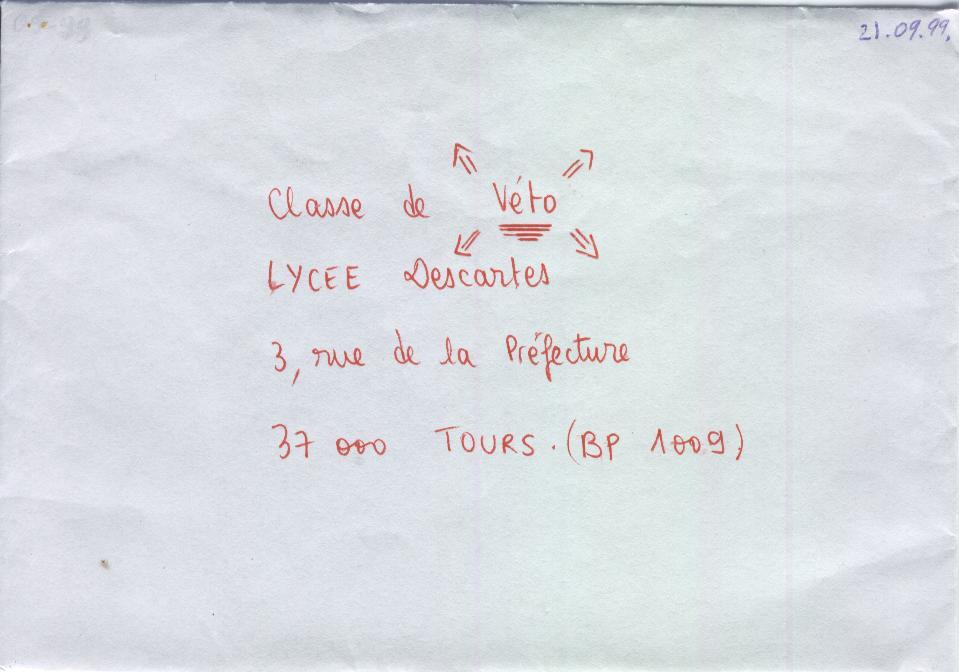 21.09.99,
Classe de Véto
LYCEE Descartes
3, rue de la Préfecture
37 000 TOURS. (BP 1009)